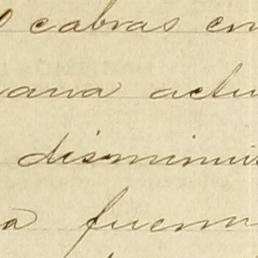 cabras en
ana actu
disminui
a fuem